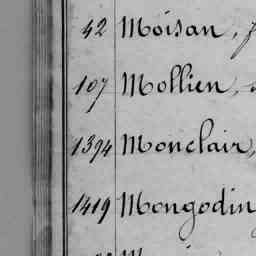 42 Moisan,
107 Mollien,
1394 Monclair,
1419 Mongodin